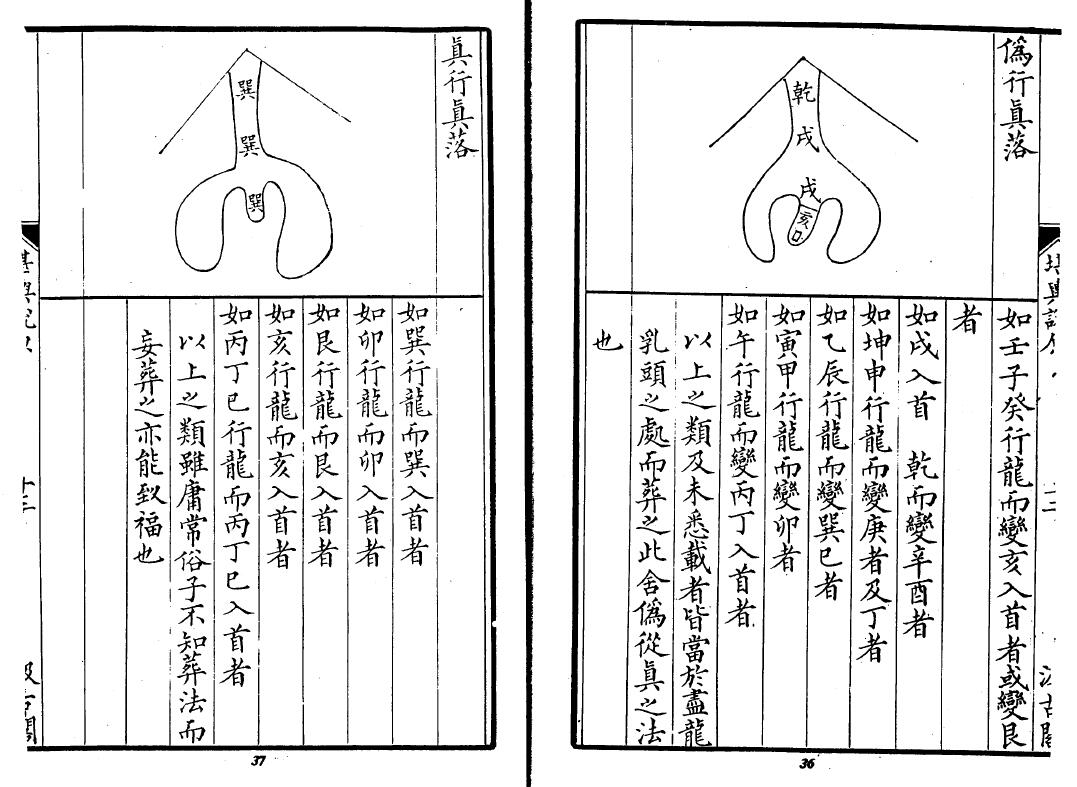 偽行眞落
乾
戌
戌
亥
如壬子癸行龍而變亥入首者或變艮
者
如戌入首 乾而變辛酉者
如坤申行龍而變庚者及丁者
如乙辰行龍而變巽巳者
如寅甲行龍而變卯者
如午行龍而變丙丁入首者
以上之類及未悉載者皆當於盡龍
乳頭之處而葬之此舍偽從眞之法
也
36
眞行眞落
巽
巽
巽
如巽行龍而巽入首者
如卯行龍而卯入首者
如艮行龍而艮入首者
如亥行龍而亥入首者
如丙丁巳行龍而丙丁巳入首者
以上之類雖庸常俗子不知葬法而
妄葬之亦能致福也
37